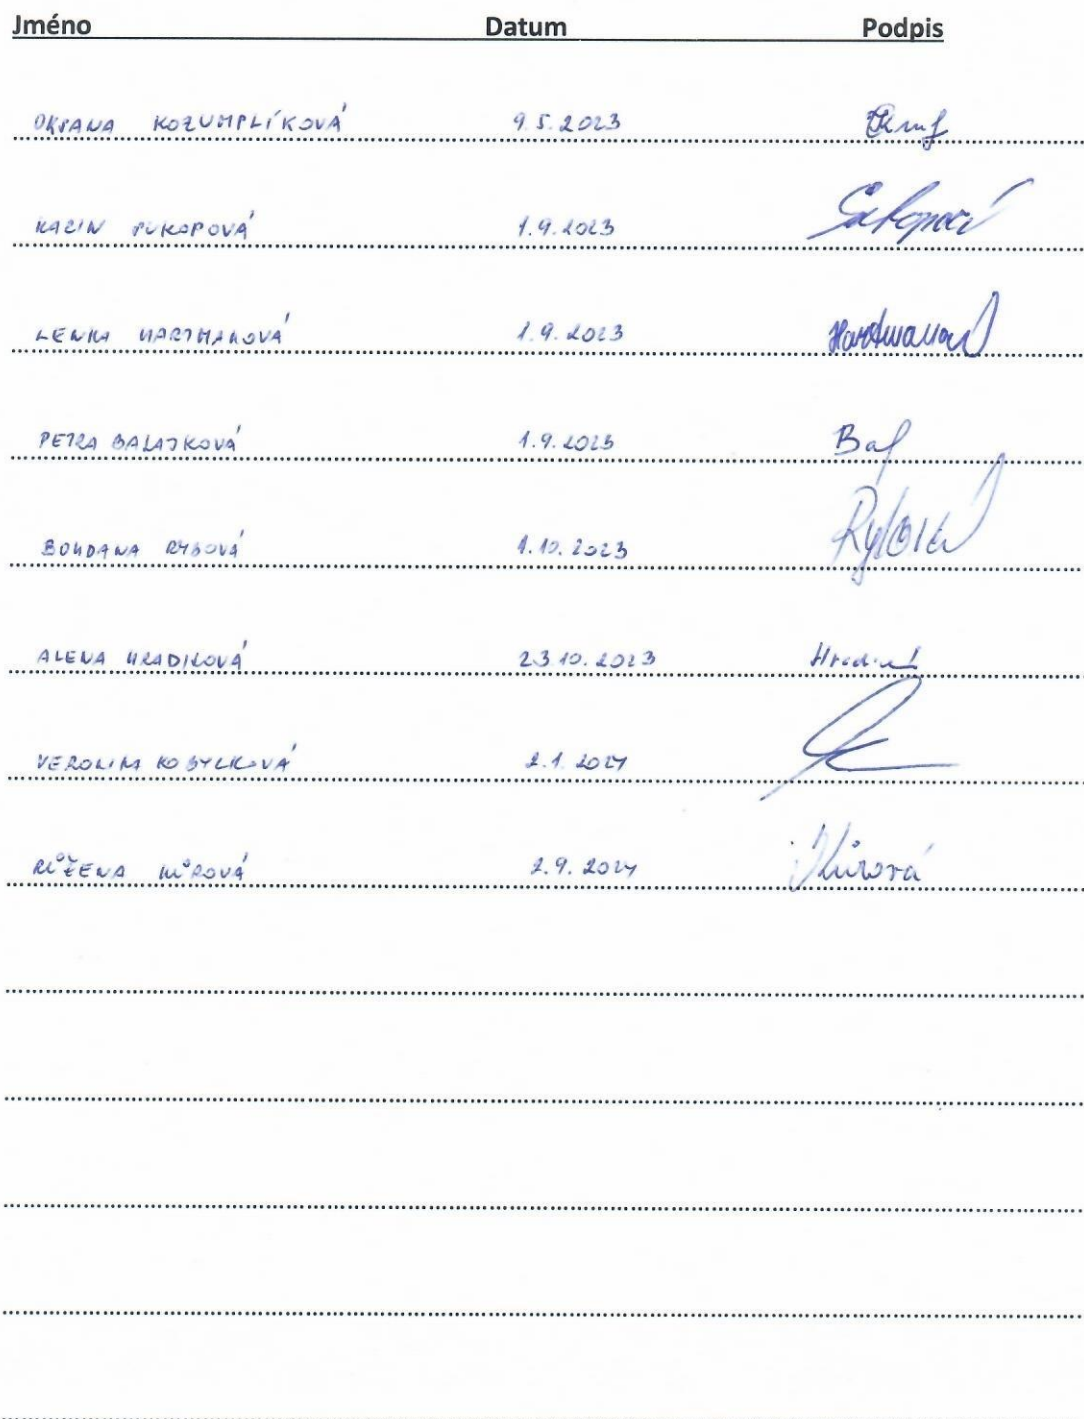 Jméno Datum Podpis
OKSANA KOZUMPLÍKOVÁ 9.5.2023
1.9.2023
LENKA HARTMANOVÁ 1.9.2023
PETRA BALAJKOVÁ 1.9.2023 Bal
BOHDANA RYBOVÁ 1.10.2023
ALENA HRADILOVÁ 23.10.2023
VERONIKA KOBYLKOVÁ 2.1.2024
RŮŽENA KŮROVÁ 2.9.2024 Kůrová